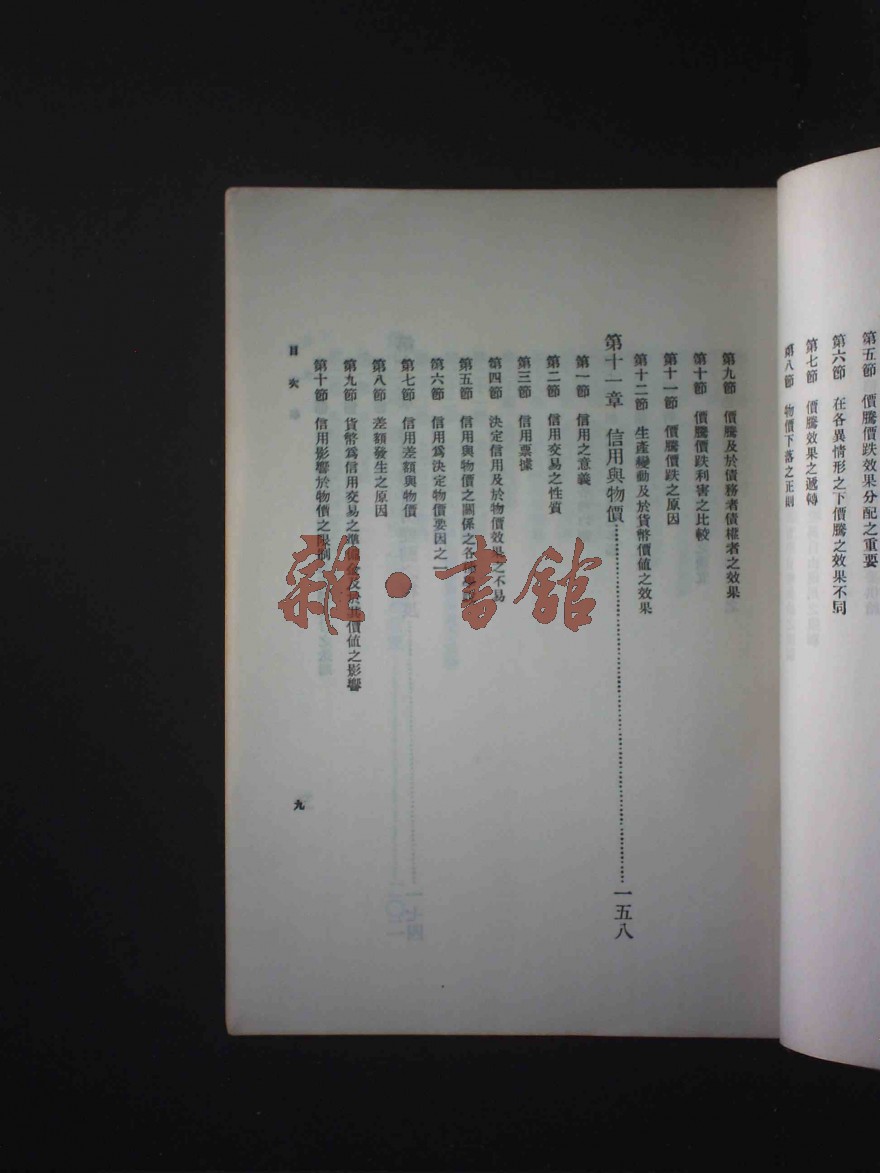 第五節　價騰價跌效果分配之重要
第六節　在各異情形之下價騰之效果不同
第七節　價騰效果之遞轉
第八節　物價下落之正則
第九節　價騰及於債務者債權者之效果
第十節　價騰價跌利害之比較
第十一節　價騰價跌之原因
第十二節　生產變動及於貨幣價值之效果
第十一章　信用與物價……一五八
第一節　信用之意義
第二節　信用交易之性質
第三節　信用票據
第四節　決定信用及於物價效果之不易
第五節　信用與物價之關係之各
第六節　信用爲決定物價要因之一
第七節　信用差額與物價
第八節　差額發生之原因
第九節　貨幣爲信用交易之準備金及於其價值之影響
第十節　信用影響於物價之限制
目次
九
雜·書館